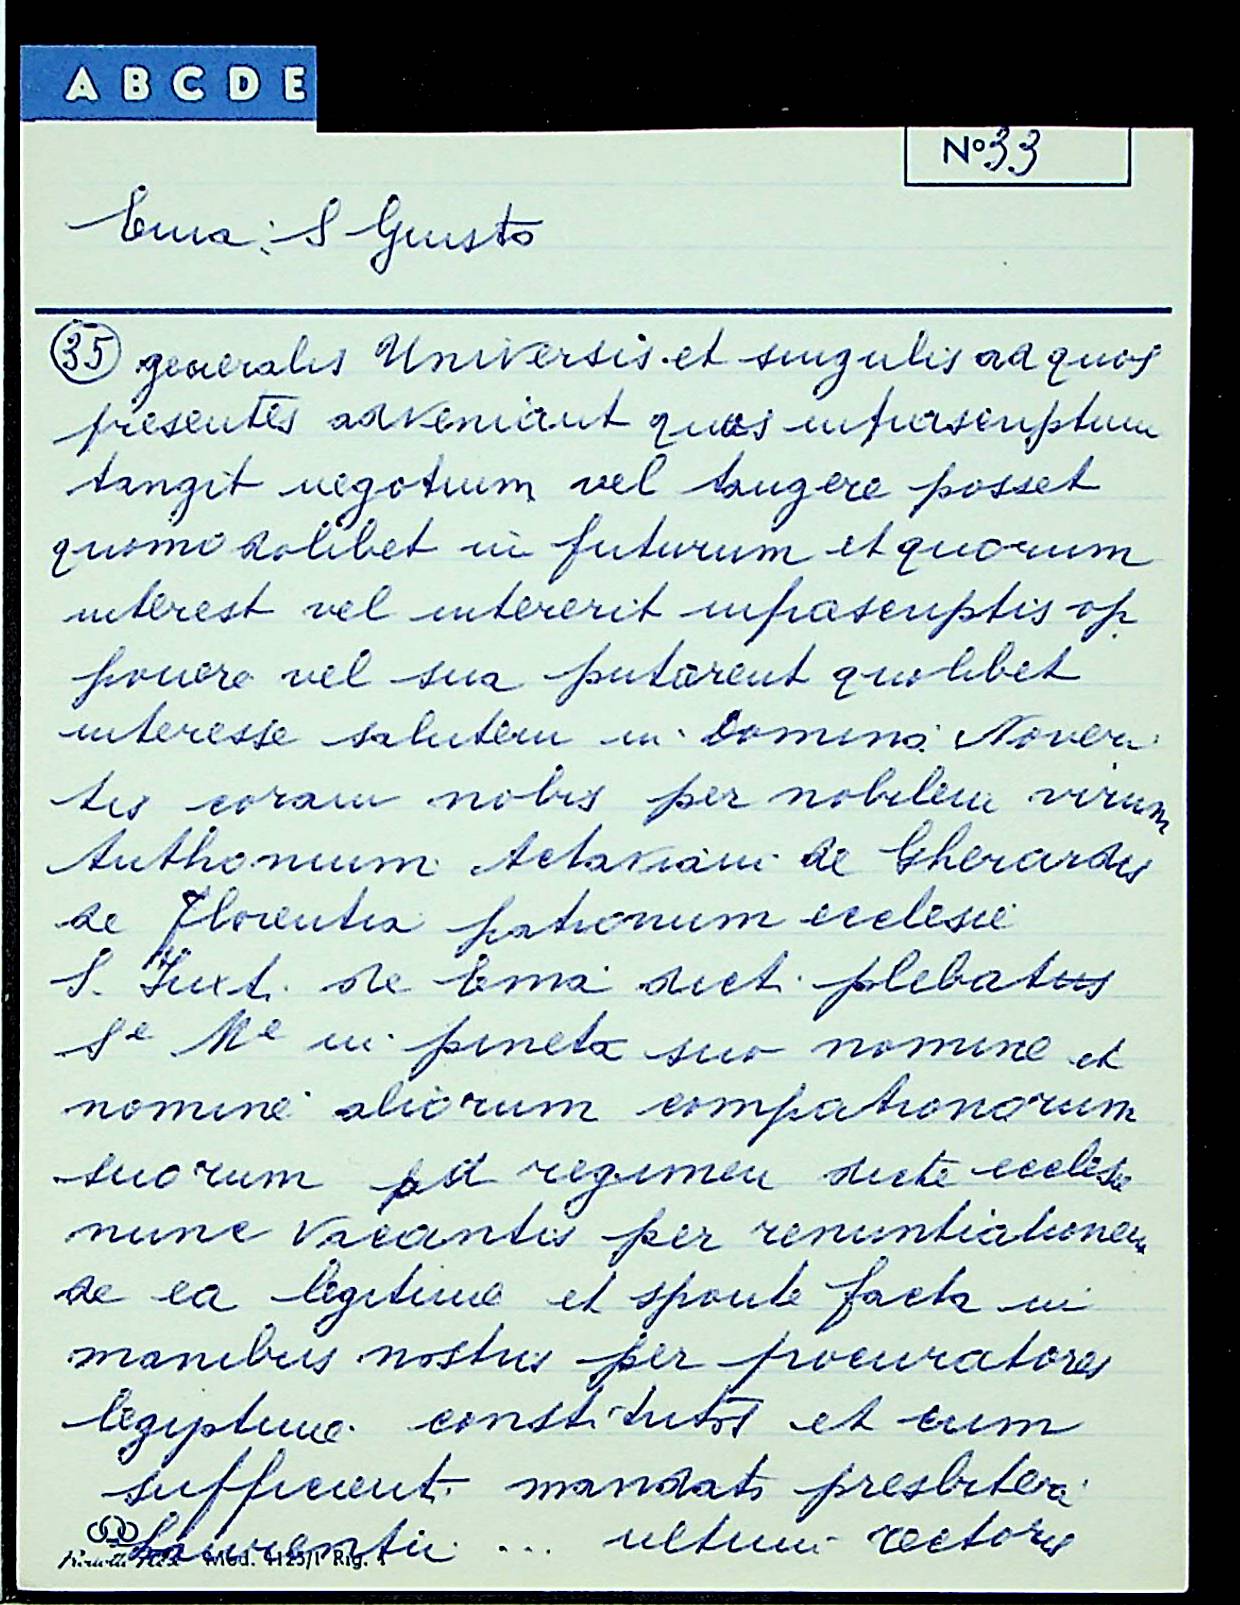 A B C D E
Nº 33
Ema: S Giusto
35 generalis Universis et singulis ad quos
presentes adveniant quos infrascriptum
tangit negotium vel tangere posset
quomodolibet in futurum et quorum
interest vel intererit infrascriptis op
ponere vel sua putarent quolibet
interesse salutem in Domino Noveri
tis coram nobis per nobilem virum
Anthonium Actaviani de Gherardis
de Florentia patronum ecclesie
S. Iuxti de Ema dicti plebatus
Se Me in pineta suo nomine et
nomine aliorum compatronorum
suorum ad regimen dicte ecclesie
nunc vacantis per renuntiationem
de ea legitime et sponte facta in
manibus nostris per procuratores
legiptime constitutos et cum
sufficienti mandato presbiteri
Laurentii ... ultimi rectoris
Mod. 4125/1 Rig.